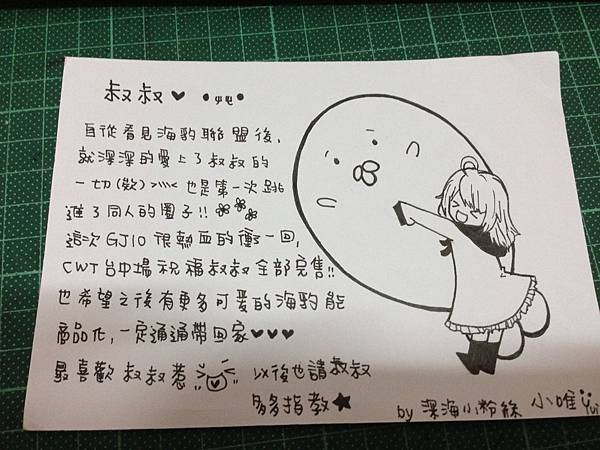 叔叔♥
自從看見海豹聯盟後,
就深深的愛上了叔叔的
一切(欸)>\\\\< 也是第一次跳
進了同人的圈子!!
這次GJ10 很熱血的衝一回,
CWT台中場 祝福叔叔全部完售!!
也希望之後有更多可愛的海豹能
商品化,一定通通帶回家♥♥♥
最喜歡 叔叔惹 以後也請叔叔
多多指教★
by 深海小粉絲 小唯 Yui